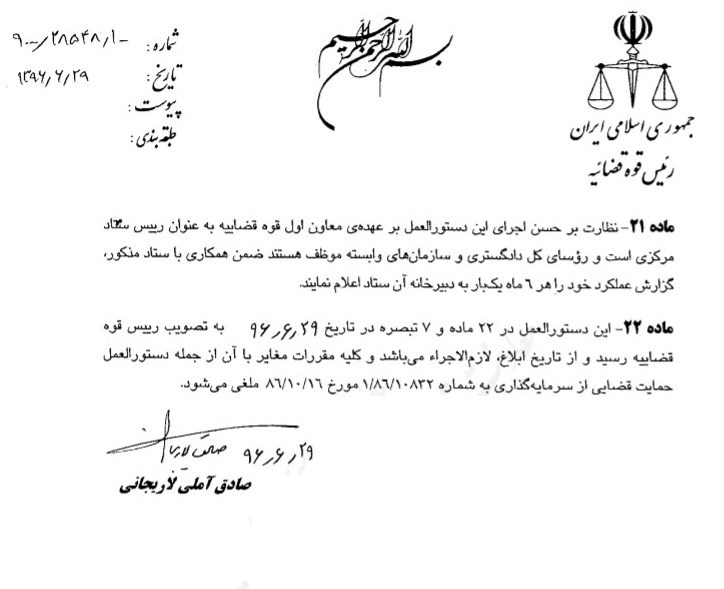 بسم الله الرحمن الرحیم
جمهوری اسلامی ایران
رئیس قوه قضائیه
شماره: ۹۰۰۰/۲۸۵۴۸/۱۰
تاریخ: ۱۳۹۶/۶/۲۹
پیوست:
طبقه بندی:
ماده ۲۱- نظارت بر حسن اجرای این دستورالعمل بر عهده‌ی معاون اول قوه قضاییه به عنوان رییس ستاد
مرکزی است و رؤسای کل دادگستری و سازمان‌های وابسته موظف هستند ضمن همکاری با ستاد مذکور،
گزارش عملکرد خود را هر ۶ ماه یکبار به دبیرخانه آن ستاد اعلام نمایند.
ماده ۲۲- این دستورالعمل در ۲۲ ماده و ۷ تبصره در تاریخ ۹۶/۶/۲۹ به تصویب رییس قوه
قضاییه رسید و از تاریخ ابلاغ، لازم‌الاجراء می‌باشد و کلیه مقررات مغایر با آن از جمله دستورالعمل
حمایت قضایی از سرمایه‌گذاری به شماره ۱/۸۶/۱۰۸۳۲ مورخ ۸۶/۱۰/۱۶ ملغی می‌شود.
صادق لاریجانی ۹۶/۶/۲۹
صادق آملی لاریجانی